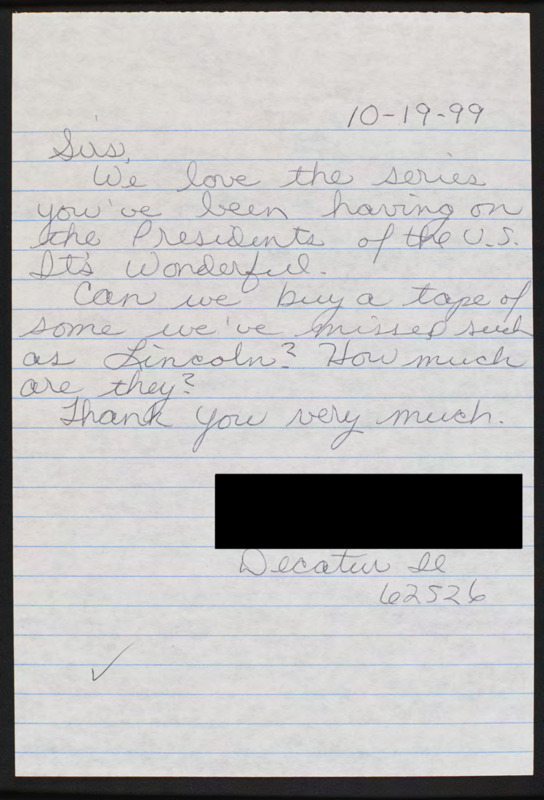 10-19-99
Sirs,
We love the series
you've been having on
the Presidents of the U.S.
It's Wonderful.
Can we buy a tape of
some we've missed such
as Lincoln? How much
are they?
Thank you very much.
Decatur Il
62526